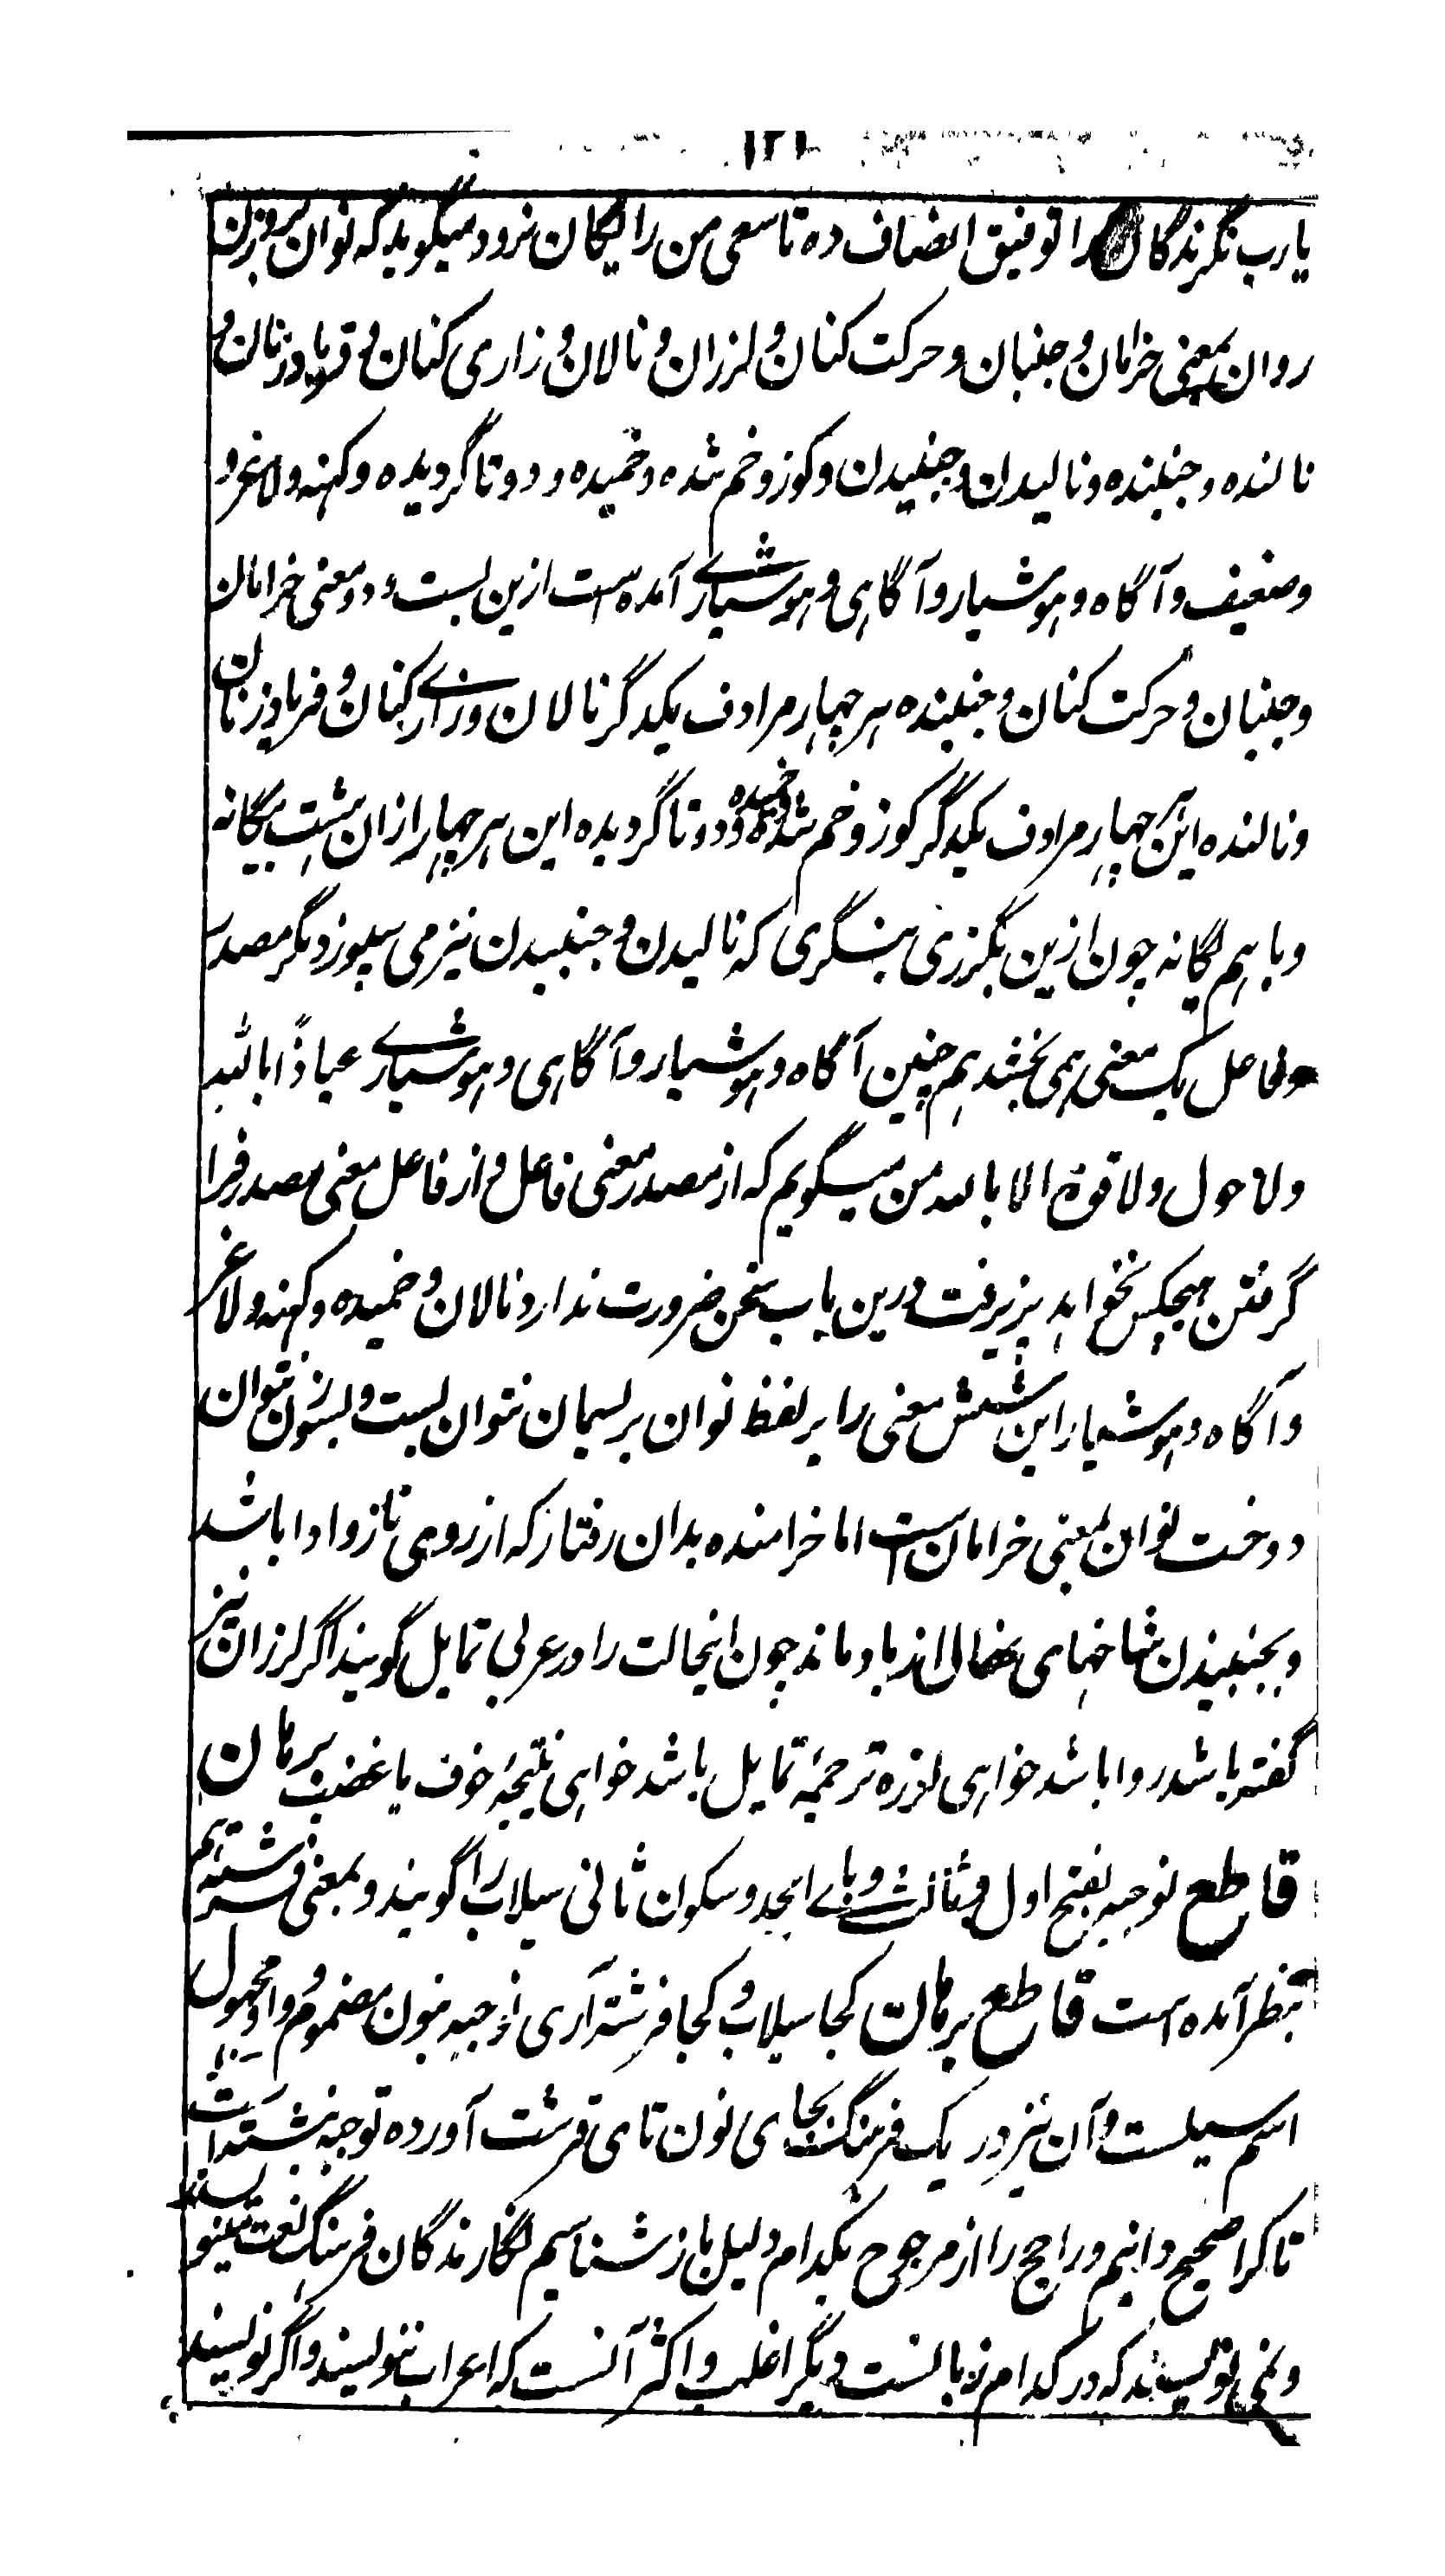 ۱۲۱
یارب نگرندگان را توفیق انصاف ده تا سعی من رایگان نرود میگوید که نوان بروزن
روان بمعنی خرامان و جنبان و حرکت کنان و لرزان و نالان و زاری کنان و فریاد زنان و
نالنده و جنبنده و نالیدن و جنبیدن و کوز و خم شده و خمیده و دوتا گردیده و کهنه و لاغر و
و ضعیف و آگاه و هوشیار و آگاهی و هوشیاری آمده است ازین بست و دو معنی خرامان
و جنبان و حرکت کنان و جنبنده هر چهار مرادف یکدگر نالان و زاری کنان و فریاد زنان
و نالنده این هر چهار مرادف یکدگر کوز و خم شده و خمیده و دوتا گردیده این هر چهار ازان هشت بیگانه
و با هم یگانه چون ازین بگزری بنگری که نالیدن و جنبیدن نیز می سپوزد مگر مصدر
و فاعل یک معنی همی بخشد هم چنین آگاه و هوشیار و آگاهی و هوشیاری عیاذاً بالله
و لا حول و لا قوة الا بالله من میگویم که از مصدر معنی فاعل و از فاعل معنی مصدر فرا
گرفتن هیچکس نخواهد پزیرفت درین باب سخن ضرورت ندارد نالان و خمیده و کهنه و لاغر
و آگاه و هوشیار این شش معنی را بر لفظ نوان بریسمان نتوان بست و بسوزن نتوان
دوخت نوان بمعنی خرامان است اما خرامنده بدان رفتار که از روی ناز و ادا باشد
و بجنبیدن شاخهای نهال از باد ماند چون اینحالت را در عربی تمایل گویند اگر لرزان نیز
گفته باشد روا باشد خواهی لرزه ترجمهٔ تمایل باشد خواهی نتیجهٔ خوف یا غضب برهان
قاطع نوجبه بفتح اول و ثالث و بای ابجد و سکون ثانی سیلاب را گویند و بمعنی فرشته هم
بنظر آمده است قاطع برهان کجا سیلاب و کجا فرشته آری نوجبه بنون مضموم و واو مجهول
اسم سیلست و آن نیز در یک فرهنگ بجای نون تای قرشت آورده توجبه نبشته است
تا کرا صحیح دانیم و راجح را از مرجوح بکدام دلیل باز شناسیم نگارندگان فرهنگ لغت مینویسند
و نمی نویسند که در کدام زبانست دیگر اغلب و اکثر آنست که اعراب ننویسند و اگر نویسند